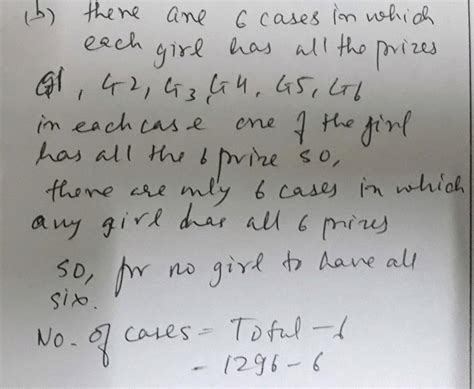 (b) there are 6 cases in which
each girl has all the prizes
G1, G2, G3, G4, G5, G6
in each case one of the girl
has all the 6 prize so,
there are only 6 cases in which
any girl has all 6 prizes
so, for no girl to have all
six.
No. of cases = Total - 6
= 1296 - 6